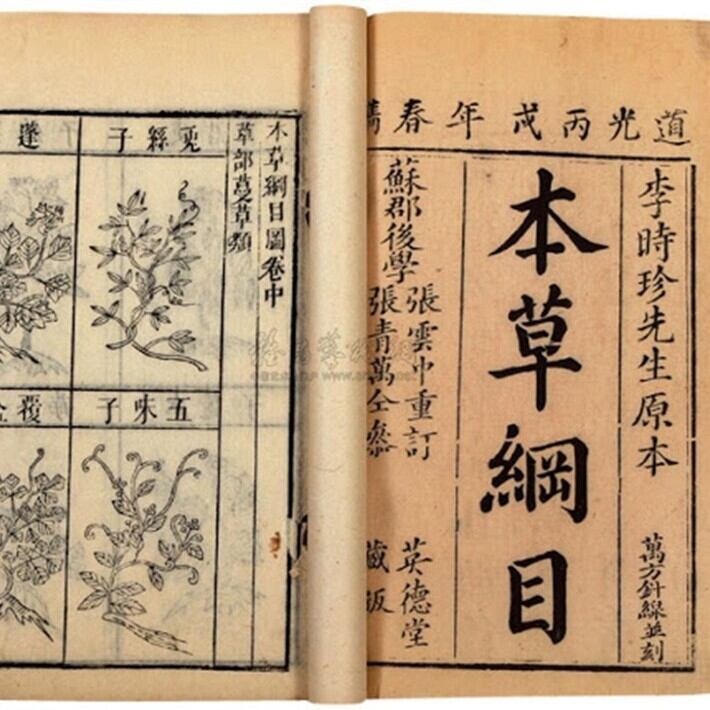 道光丙戌年春鐫
李時珍先生原本
萬方針線並刻
本草綱目
蘇郡後學
張雲中重訂
張青萬仝參
英德堂
藏板
本草綱目圖卷中
草部蔓草類
兎絲子
五味子
蓬
覆